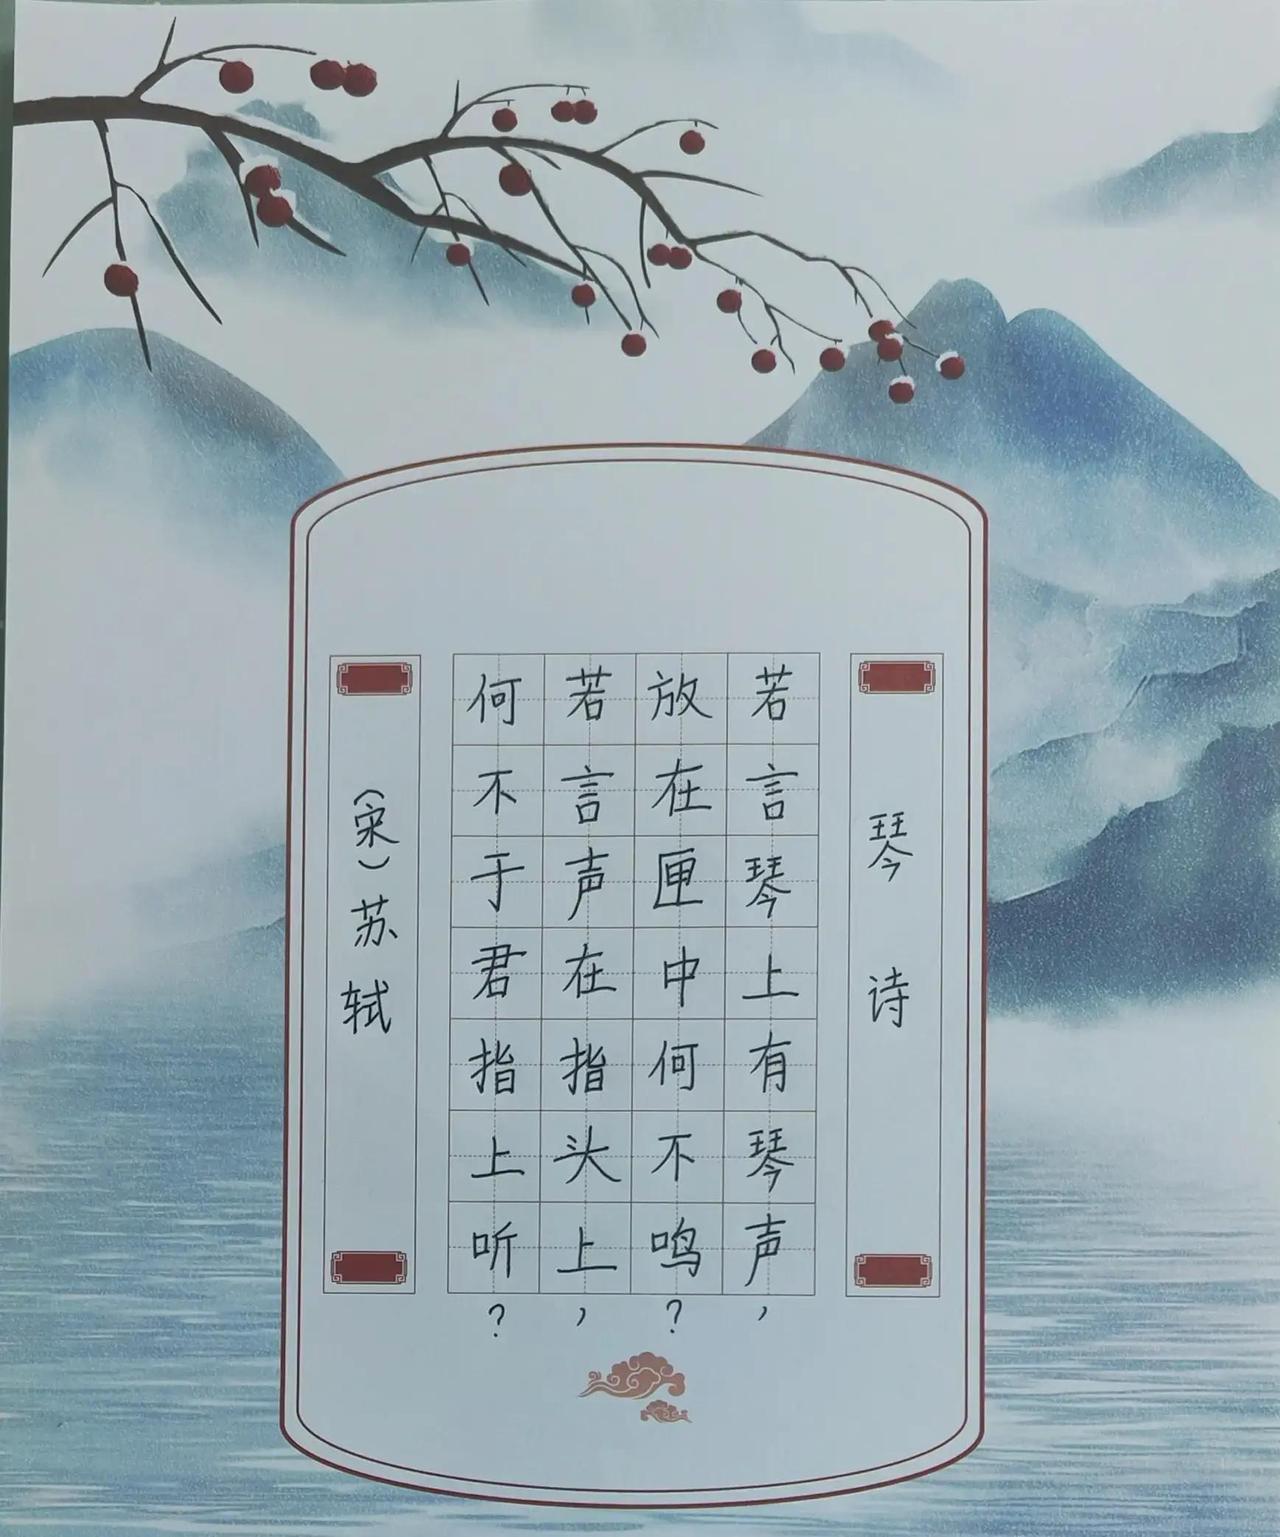 琴诗
若言琴上有琴声，
放在匣中何不鸣？
若言声在指头上，
何不于君指上听？
（宋）苏轼